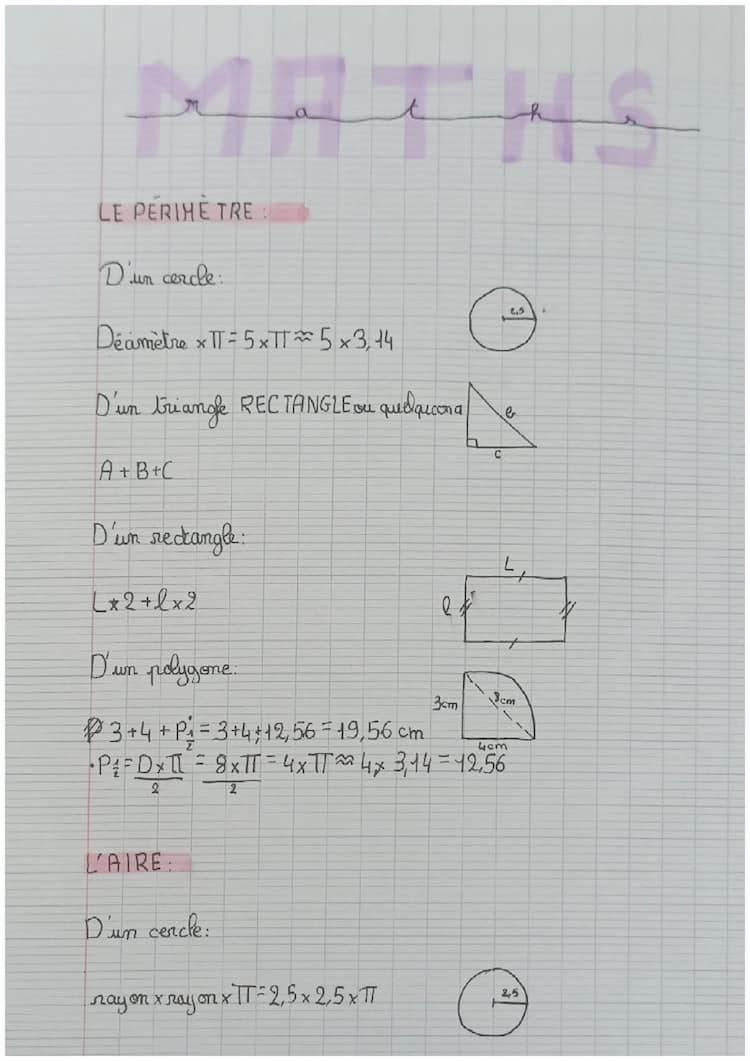 MATHS
Maths
LE PÉRIMÈTRE :
D'un cercle :
2,5
Déamètre x π = 5 x π ≈ 5 x 3,14
D'un triangle RECTANGLE ou quelqucona
B
C
A + B + C
D'un rectangle :
L
L x 2 + l x 2
l
D'un polygone :
3cm
8cm
3 + 4 + P½ = 3 + 4 + 12,56 = 19,56 cm
4cm
• P½ = D x π / 2 = 8 x π / 2 = 4 x π ≈ 4 x 3,14 = 12,56
L'AIRE :
D'un cercle :
rayon x rayon x π = 2,5 x 2,5 x π
2,5